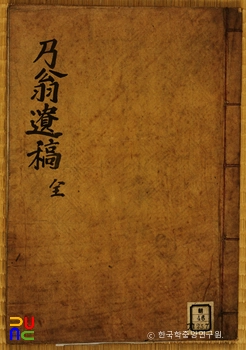 乃翁遺稿 全
© 한국학중앙연구원